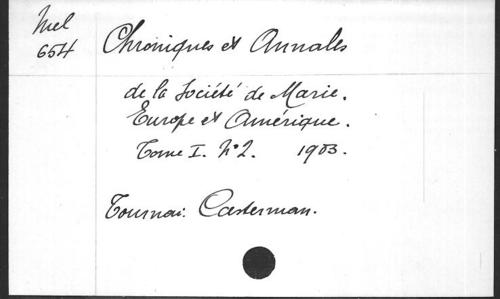 Mel
654
Chroniques et Annales
de la Société de Marie.
Europe et Amérique.
Tome I. N°2. 1903.
Tournai: Casterman.